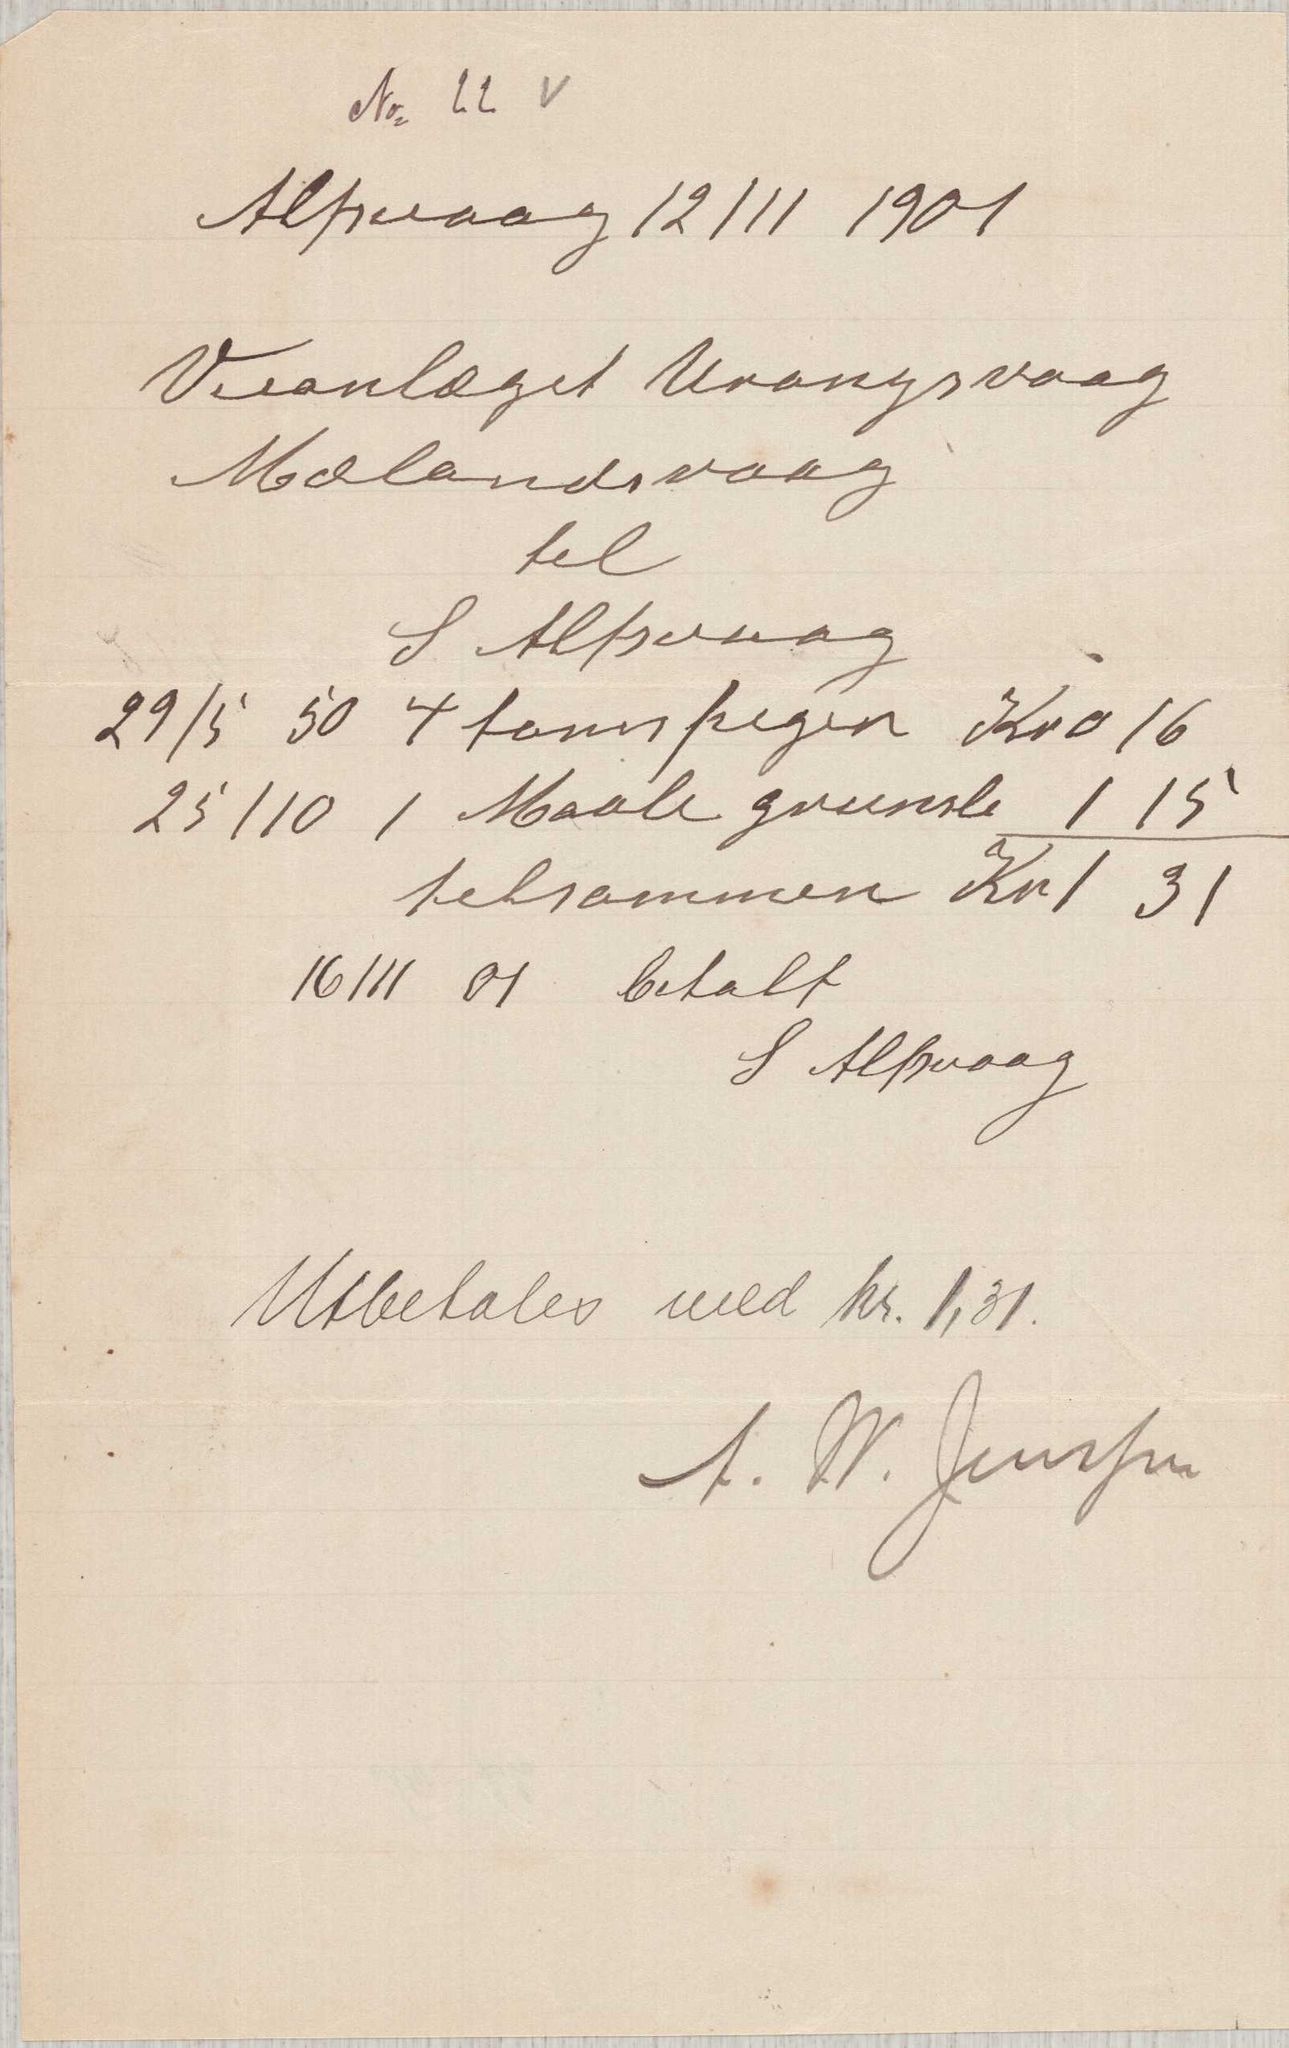 No. 22 V
Alfsvaag 12/11 1901
Veianlæget Urangsvaag
Mælandsvaag
tel
S Alfsvaag
29/5 50 4 toms Kr 0 16
25/10 1 Maale 1 15
telsammen Kr 1 31
16/11 01 betalt
S Alfsvaag
Utbetales med kr. 1,31.
A. W. Jensen